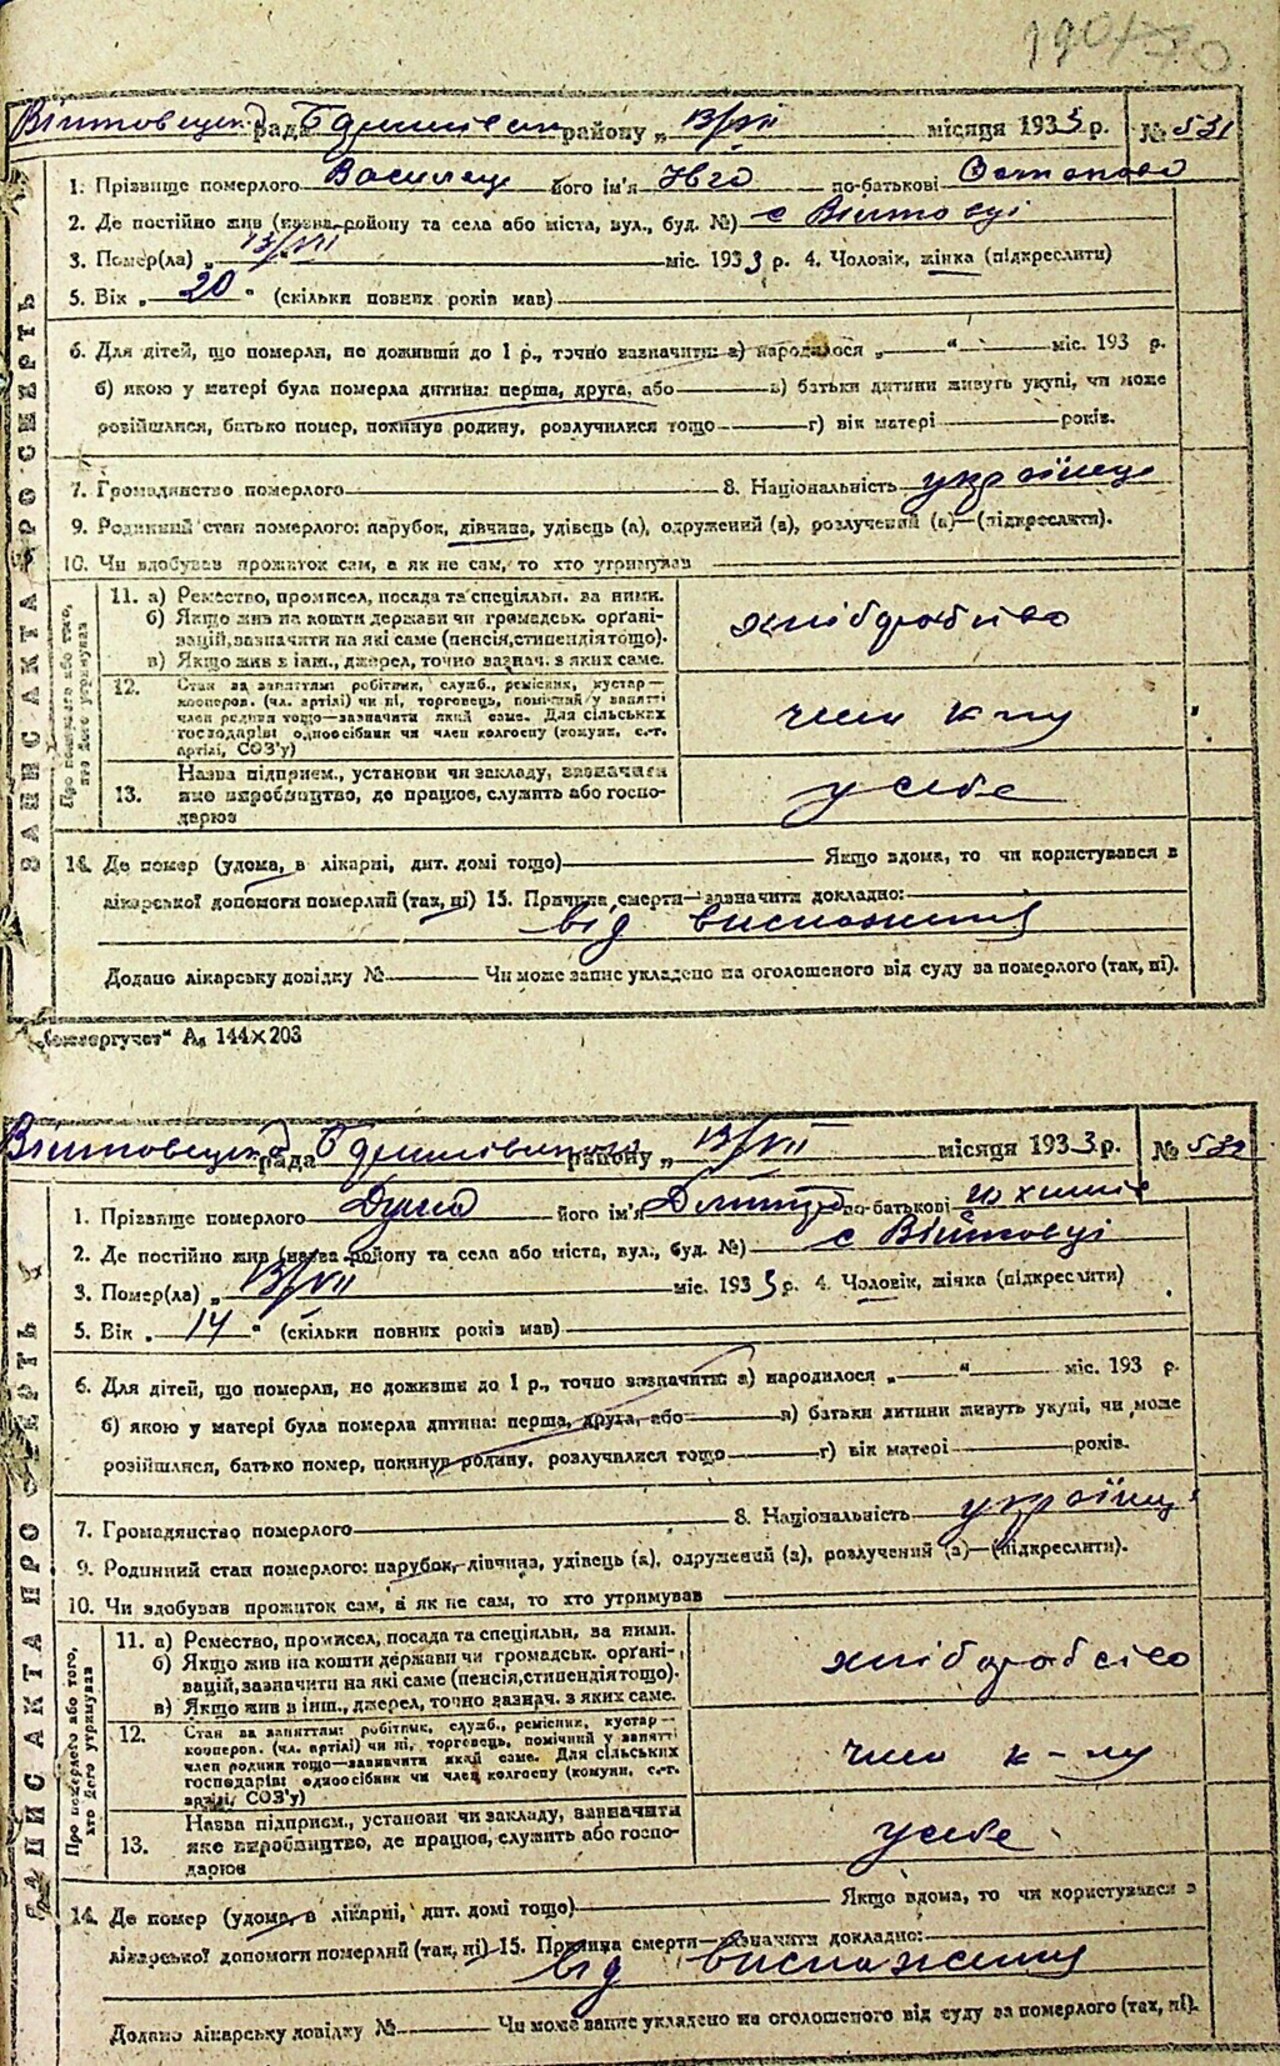 190/70
Війтовецьк рада районy „ 13/VII місяця 1933 р. № 531
1. Прізвище померлого його ім'я по-батькові
2. Де постійно жив (назва району та села або міста, вул., буд. №) с Війтовці
3. Помер(ла) „ 13/VII міс. 1933 р. 4. Чоловік, жінка (підкреслити)
5. Вік „ 20 " (скільки повних років мав)
6. Для дітей, що померли, не доживши до 1 р., точно зазначити: а) народилося „ " міс. 193 р.
б) якою у матері була померла дитина: перша, друга, або в) батьки дитини живуть укупі, чи може
розійшлися, батько помер, покинув родину, розлучилися тощо г) вік матері років.
7. Громадянство померлого 8. Національність українець
9. Родинний стан померлого: парубок, дівчина, удівець (а), одружений (а), розлучений (а)—(підкреслити).
10. Чи здобував прожиток сам, а як не сам, то хто утримував
ЗАПИС АКТА ПРО СМЕРТЬ
Про померлого або того, хто його утримував
11. а) Ремество, промисел, посада та спеціяльн. за ними.
б) Якщо жив на кошти держави чи громадськ. органі-
зацій, зазначити на які саме (пенсія, стипендія тощо).
в) Якщо жив з інш., джерел, точно зазнач. з яких саме.
хліборобство
12. Стан за заняттям: робітник, служб., ремісник, кустар—
кооперов. (чл. артілі) чи ні, торговець, помічний у занятті
член родини тощо—зазначити який саме. Для сільських
господарів: одноосібник чи член колгоспу (комуни, с.-г.
артілі, СОЗ'у)
член к-пу
13. Назва підприєм., установи чи закладу, зазначити
яке виробництво, де працює, служить або госпо-
дарює
у себе
14. Де помер (удома, в лікарні, дит. домі тощо) Якщо вдома, то чи користувався з
лікарської допомоги померлий (так, ні) 15. Причина смерти—зазначити докладно:
від виснаження
Додано лікарську довідку № Чи може запис укладено на оголошеного від суду за померлого (так, ні).
„Союзоргучет" А„ 144×203
Війтовецьк рада районy „ 13/VII місяця 1933 р. № 532
1. Прізвище померлого його ім'я Дмитро по-батькові
2. Де постійно жив (назва району та села або міста, вул., буд. №) с Війтовці
3. Помер(ла) „ 13/VII міс. 1933 р. 4. Чоловік, жінка (підкреслити)
5. Вік „ 14 " (скільки повних років мав)
6. Для дітей, що померли, не доживши до 1 р., точно зазначити: а) народилося „ " міс. 193 р.
б) якою у матері була померла дитина: перша, друга, або в) батьки дитини живуть укупі, чи може
розійшлися, батько помер, покинув родину, розлучилися тощо г) вік матері років.
7. Громадянство померлого 8. Національність українець
9. Родинний стан померлого: парубок, дівчина, удівець (а), одружений (а), розлучений (а)—(підкреслити).
10. Чи здобував прожиток сам, а як не сам, то хто утримував
ЗАПИС АКТА ПРО СМЕРТЬ
Про померлого або того, хто його утримував
11. а) Ремество, промисел, посада та спеціяльн. за ними.
б) Якщо жив на кошти держави чи громадськ. органі-
зацій, зазначити на які саме (пенсія, стипендія тощо).
в) Якщо жив в інш., джерел, точно зазнач. з яких саме.
хліборобство
12. Стан за заняттям: робітник, служб., ремісник, кустар—
кооперов. (чл. артілі) чи ні, торговець, помічний у занятті
член родини тощо—зазначити який саме. Для сільських
господарів: одноосібник чи член колгоспу (комуни, с.-г.
артілі, СОЗ'у)
член к-пу
13. Назва підприєм., установи чи закладу, зазначити
яке виробництво, де працює, служить або госпо-
дарює
у себе
14. Де помер (удома, в лікарні, дит. домі тощо) Якщо вдома, то чи користувався з
лікарської допомоги померлий (так, ні) 15. Причина смерти—зазначити докладно:
від виснаження
Додано лікарську довідку № Чи може запис укладено на оголошеного від суду за померлого (так, ні).